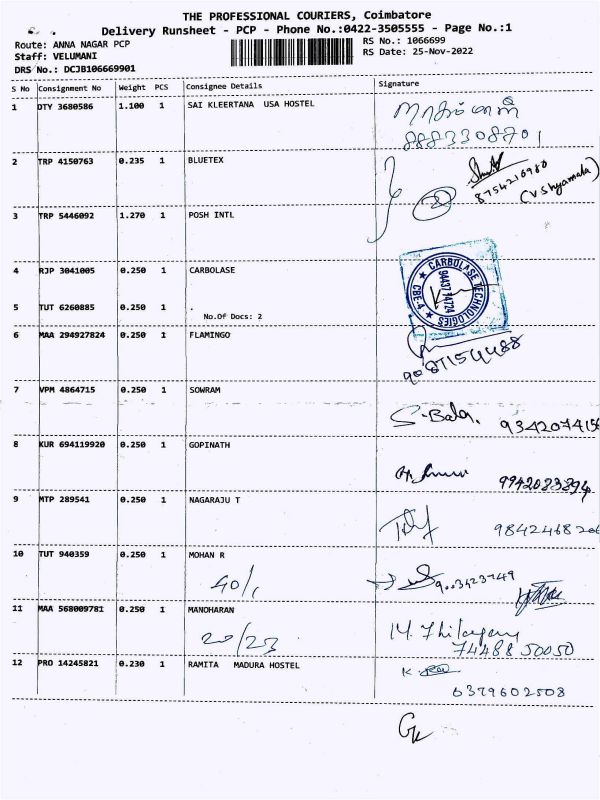 THE PROFESSIONAL COURIERS, Coimbatore
Delivery Runsheet - PCP - Phone No.:0422-3505555 - Page No.:1
Route: ANNA NAGAR PCP
RS No.: 1066699
Staff: VELUMANI
RS Date: 25-Nov-2022
DRS No.: DCJB106669901
S No Consignment No Weight PCS Consignee Details Signature
1 DTY 3680586 1.100 1 SAI KLEERTANA USA HOSTEL
8883308701
2 TRP 4150763 0.235 1 BLUETEX
8754216980
(V Shyamala)
3 TRP 5446092 1.270 1 POSH INTL
4 RJP 3041005 0.250 1 CARBOLASE
CARBOLASE TECHNOLOGIES
CBE-4
9443774724
5 TUT 6260885 0.250 1 .
No.Of Docs: 2
6 MAA 294927824 0.250 1 FLAMINGO
9087154488
7 VPM 4864715 0.250 1 SOWRAM
S-Bala. 934207415
8 KUR 694119920 0.250 1 GOPINATH
9942083894
9 MTP 289541 0.250 1 NAGARAJU T
984246820
10 TUT 940359 0.250 1 MOHAN R
40/1
9003423749
11 MAA 568009781 0.250 1 MANOHARAN
20/23
7448850050
12 PRO 14245821 0.230 1 RAMITA MADURA HOSTEL
6379602508